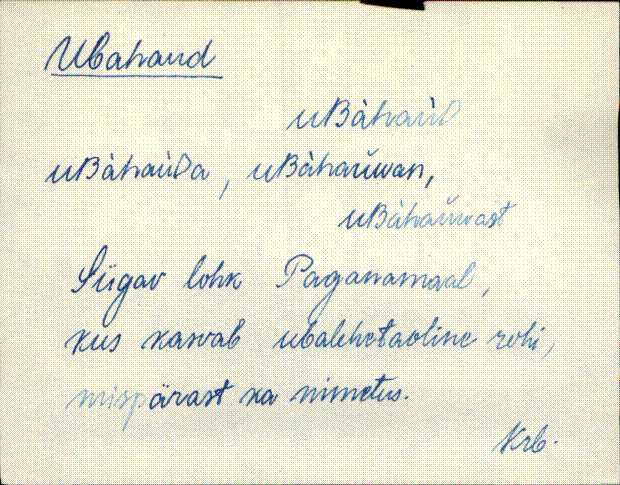 Ubahaud
uBàhaùD
uBàhaùDa, uBàhaŭwan,
uBàhaŭwast
Sügav lohk Paganamaal,
kus kasvab ubalehetaoline rohi,
mispärast ka nimetus.
Krb.